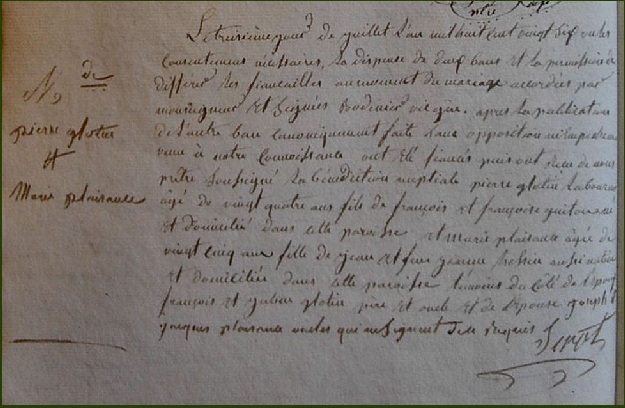 Le troisieme jour de juillet l'an mil huit cent vingt six vu les
consentemens nécessaires, la dispense de deux bans et la permission de
differer les fiancailles au moment du mariage accordées par
monseigneur et signées Bodinier vic. gén. après la publication
de l'autre ban canoniquement faite sans opposition ni empechement
venu à notre connoissance ont été fiancés puis ont recu de nous
prêtre soussigné la bénédiction nuptiale pierre glotin laboureur
âgé de vingt quatre ans fils de françois et françoise
et domicilié dans cette paroisse et marie plaisance âgée de
vingt cinq ans fille de jean et feue jeanne aussi native
et domiciliée dans cette paroisse témoins du côté de l'époux
françois et julien glotin père et oncle et de l'épouse joseph et
jacques plaisance oncles qui ne signent de ce requis
M. de
pierre glotin
et
Marie plaisance